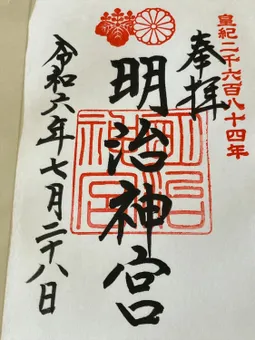 皇紀二千六百八十四年
奉拝
明治神宮
明治神宮
令和六年七月二十八日